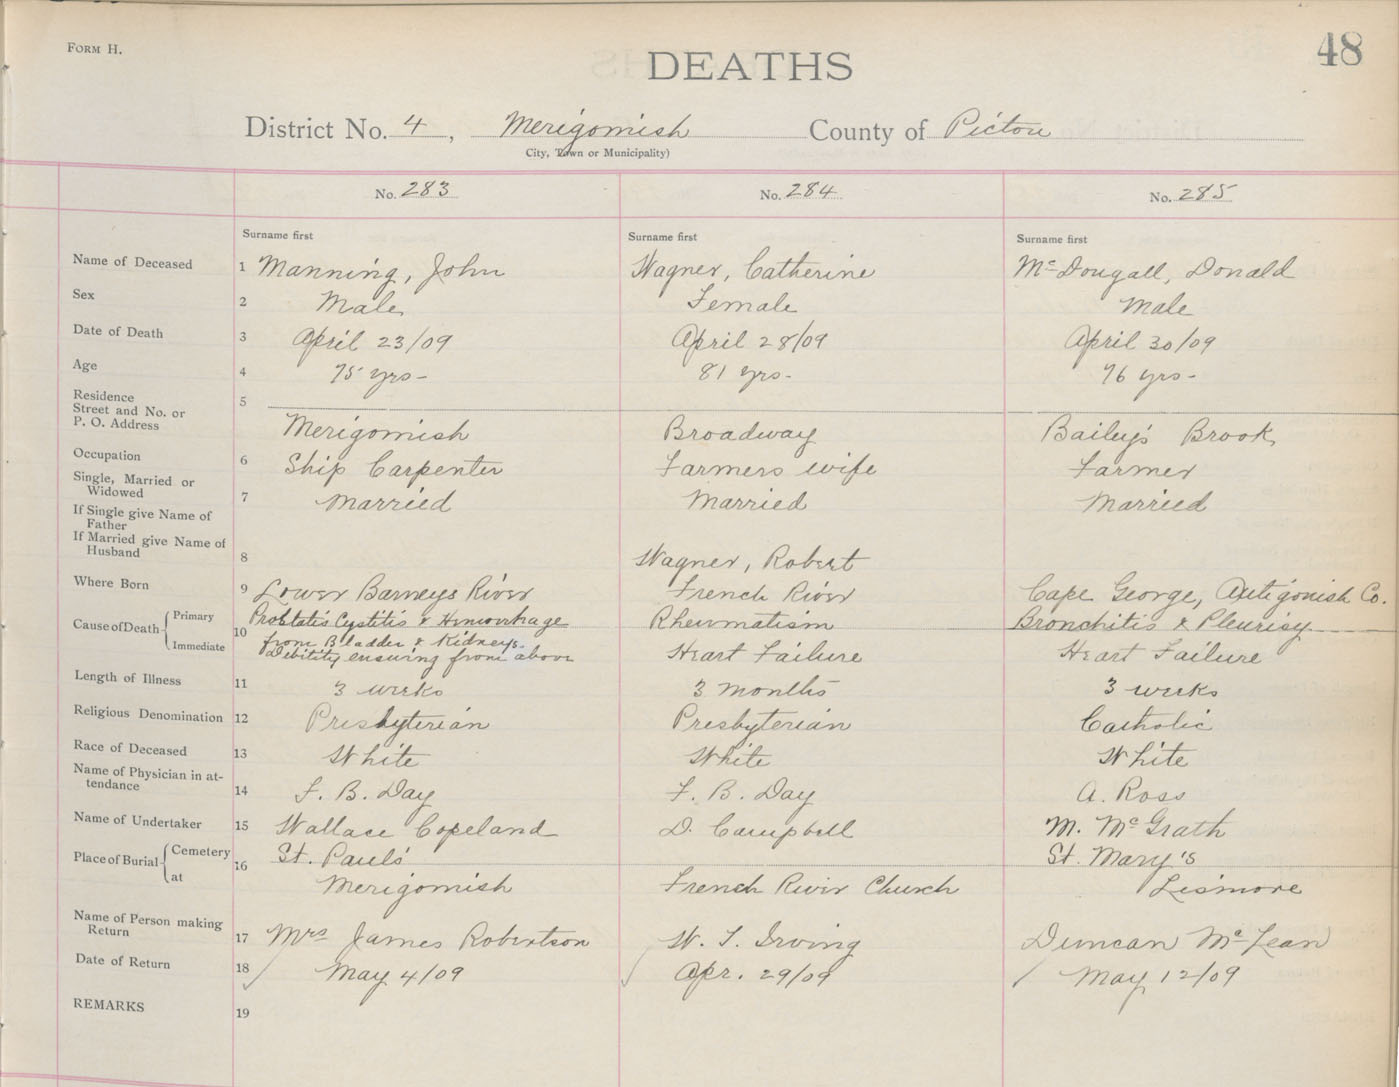 FORM H.
48
DEATHS
District No. 4, Merigomish County of Pictou
City, Town or Municipality)
No. 283 No. 284 No. 285
Surname first Surname first Surname first
Name of Deceased 1 Manning, John Wagner, Catherine McDougall, Donald
Sex 2 Male Female Male
Date of Death 3 April 23/09 April 28/09 April 30/09
Age 4 75 yrs- 81 yrs- 76 yrs-
Residence
Street and No. or
P. O. Address 5 Merigomish Broadway Bailey's Brook
Occupation 6 Ship Carpenter Farmers wife Farmer
Single, Married or
Widowed 7 Married Married Married
If Single give Name of
Father
If Married give Name of
Husband 8 Wagner, Robert
Where Born 9 Lower Barneys River French River Cape George, Antigonish Co.
Cause of Death Primary 10 Prostatis Cystitis & Hemorrhage Rheumatism Bronchitis & Pleurisy
from Bladder & Kidneys.
Immediate Debility ensuing from above Heart Failure Heart Failure
Length of Illness 11 3 weeks 3 months 3 weeks
Religious Denomination 12 Presbyterian Presbyterian Catholic
Race of Deceased 13 White White White
Name of Physician in at-
tendance 14 F. B. Day F. B. Day A. Ross
Name of Undertaker 15 Wallace Copeland D. Campbell M. McGrath
Place of Burial Cemetery 16 St. Paul's St. Mary's
at Merigomish French River Church Lismore
Name of Person making
Return 17 Mrs James Robertson W. T. Irving Duncan McLean
Date of Return 18 May 4/09 Apr. 29/09 May 12/09
REMARKS 19